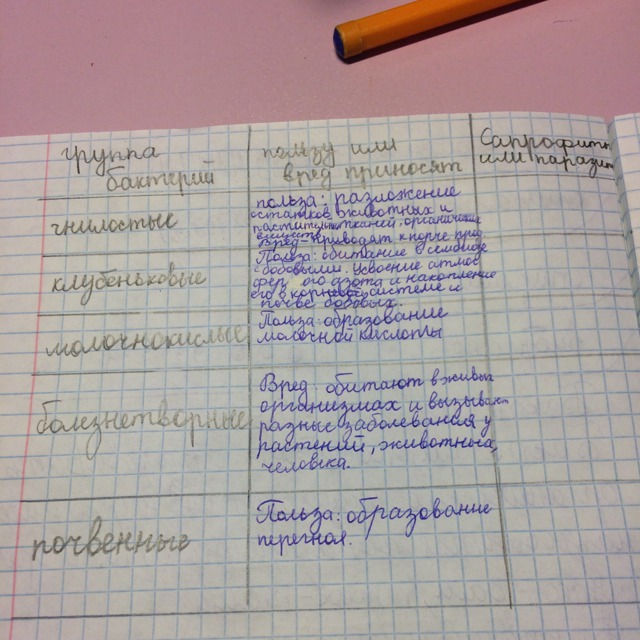 группа
бактерий
пользу или
вред приносят
Сапрофиты
или паразит
гнилостые
польза: разложение
остатков животных и
растительн тканей, органических
веществ
Вред-приводят к порче прод
клубеньковые
Польза: обитание в симбиозе
с бобовыми. Усвоение атмос
фер ого азота и накопление
его в корневой системе и
почве бобовых.
молочнокислые
Польза: образование
молочной кислоты
болезнетворные
Вред: обитают в живых
организмах и вызывают
разные заболевания у
растений, животного,
человека.
почвенные
Польза: образование
перегноя.